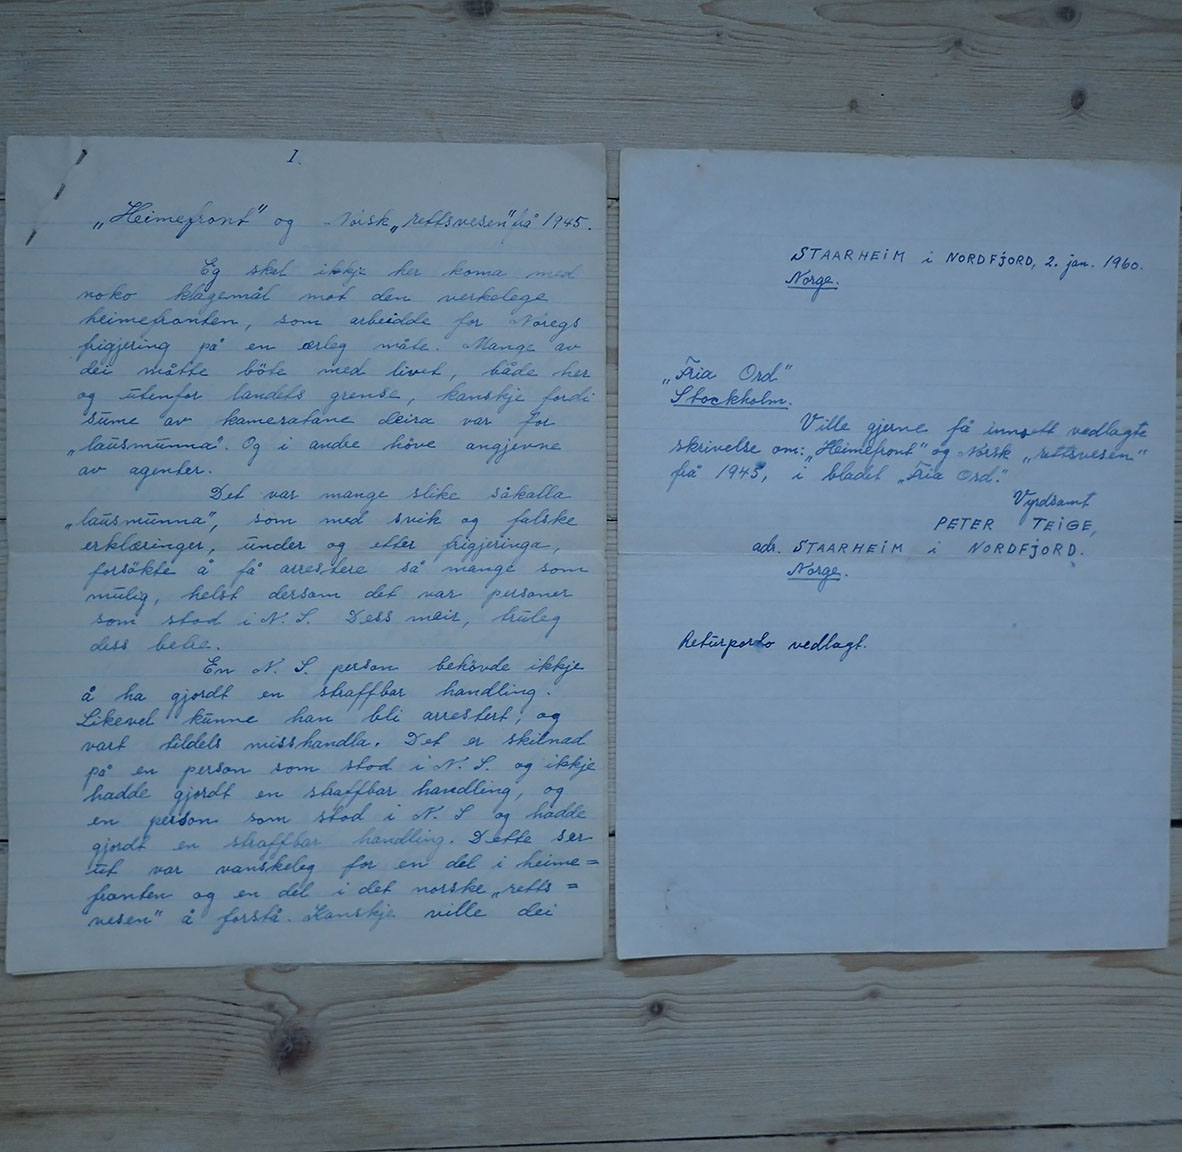 I.
„Heimefront" og Norsk „rettsvesen" frå 1945.
Eg skal ikkje her koma med
noko klagemål mot den verkelege
heimefronten, som arbeidde for Noregs
frigjering på en ærleg måte. Mange av
dei måtte böte med livet, både her
og utenfor landets grense, kanskje fordi
sume av kameratane deira var for
„lausmunna". Og i andre höve angjevne
av agenter.
Det var mange slike såkalla
„lausmunna", som med svik og falske
erklæringer, under og etter frigjeringa,
forsökte å få arrestere så mange som
mulig, helst dersom det var personer
som stod i N. S. Dess meir, truleg
dess betre.
En N. S. person behövde ikkje
å ha gjordt en straffbar handling.
Likevel kunne han bli arrestert, og
vart tildels misshandla. Det er skilnad
på en person som stod i N. S. og ikkje
hadde gjordt en straffbar handling, og
en person som stod i N. S og hadde
gjordt en straffbar handling. Dette ser
ut var vanskeleg for en del i heime=
franten og en del i det norske „retts=
vesen" å forstå. Kanskje ville dei
STAARHEIM i NORDFJORD, 2. jan. 1960.
Norge.
„Fria Ord"
Stockholm.
Ville gjerne få innsett vedlagte
skrivelse om: „Heimefront" og Norsk „rettsvesen"
frå 1945, i bladet „Fria Ord".
Vyrdsamt
PETER TEIGE,
adr. STAARHEIM i NORDFJORD.
Norge.
Returporto vedlagt.